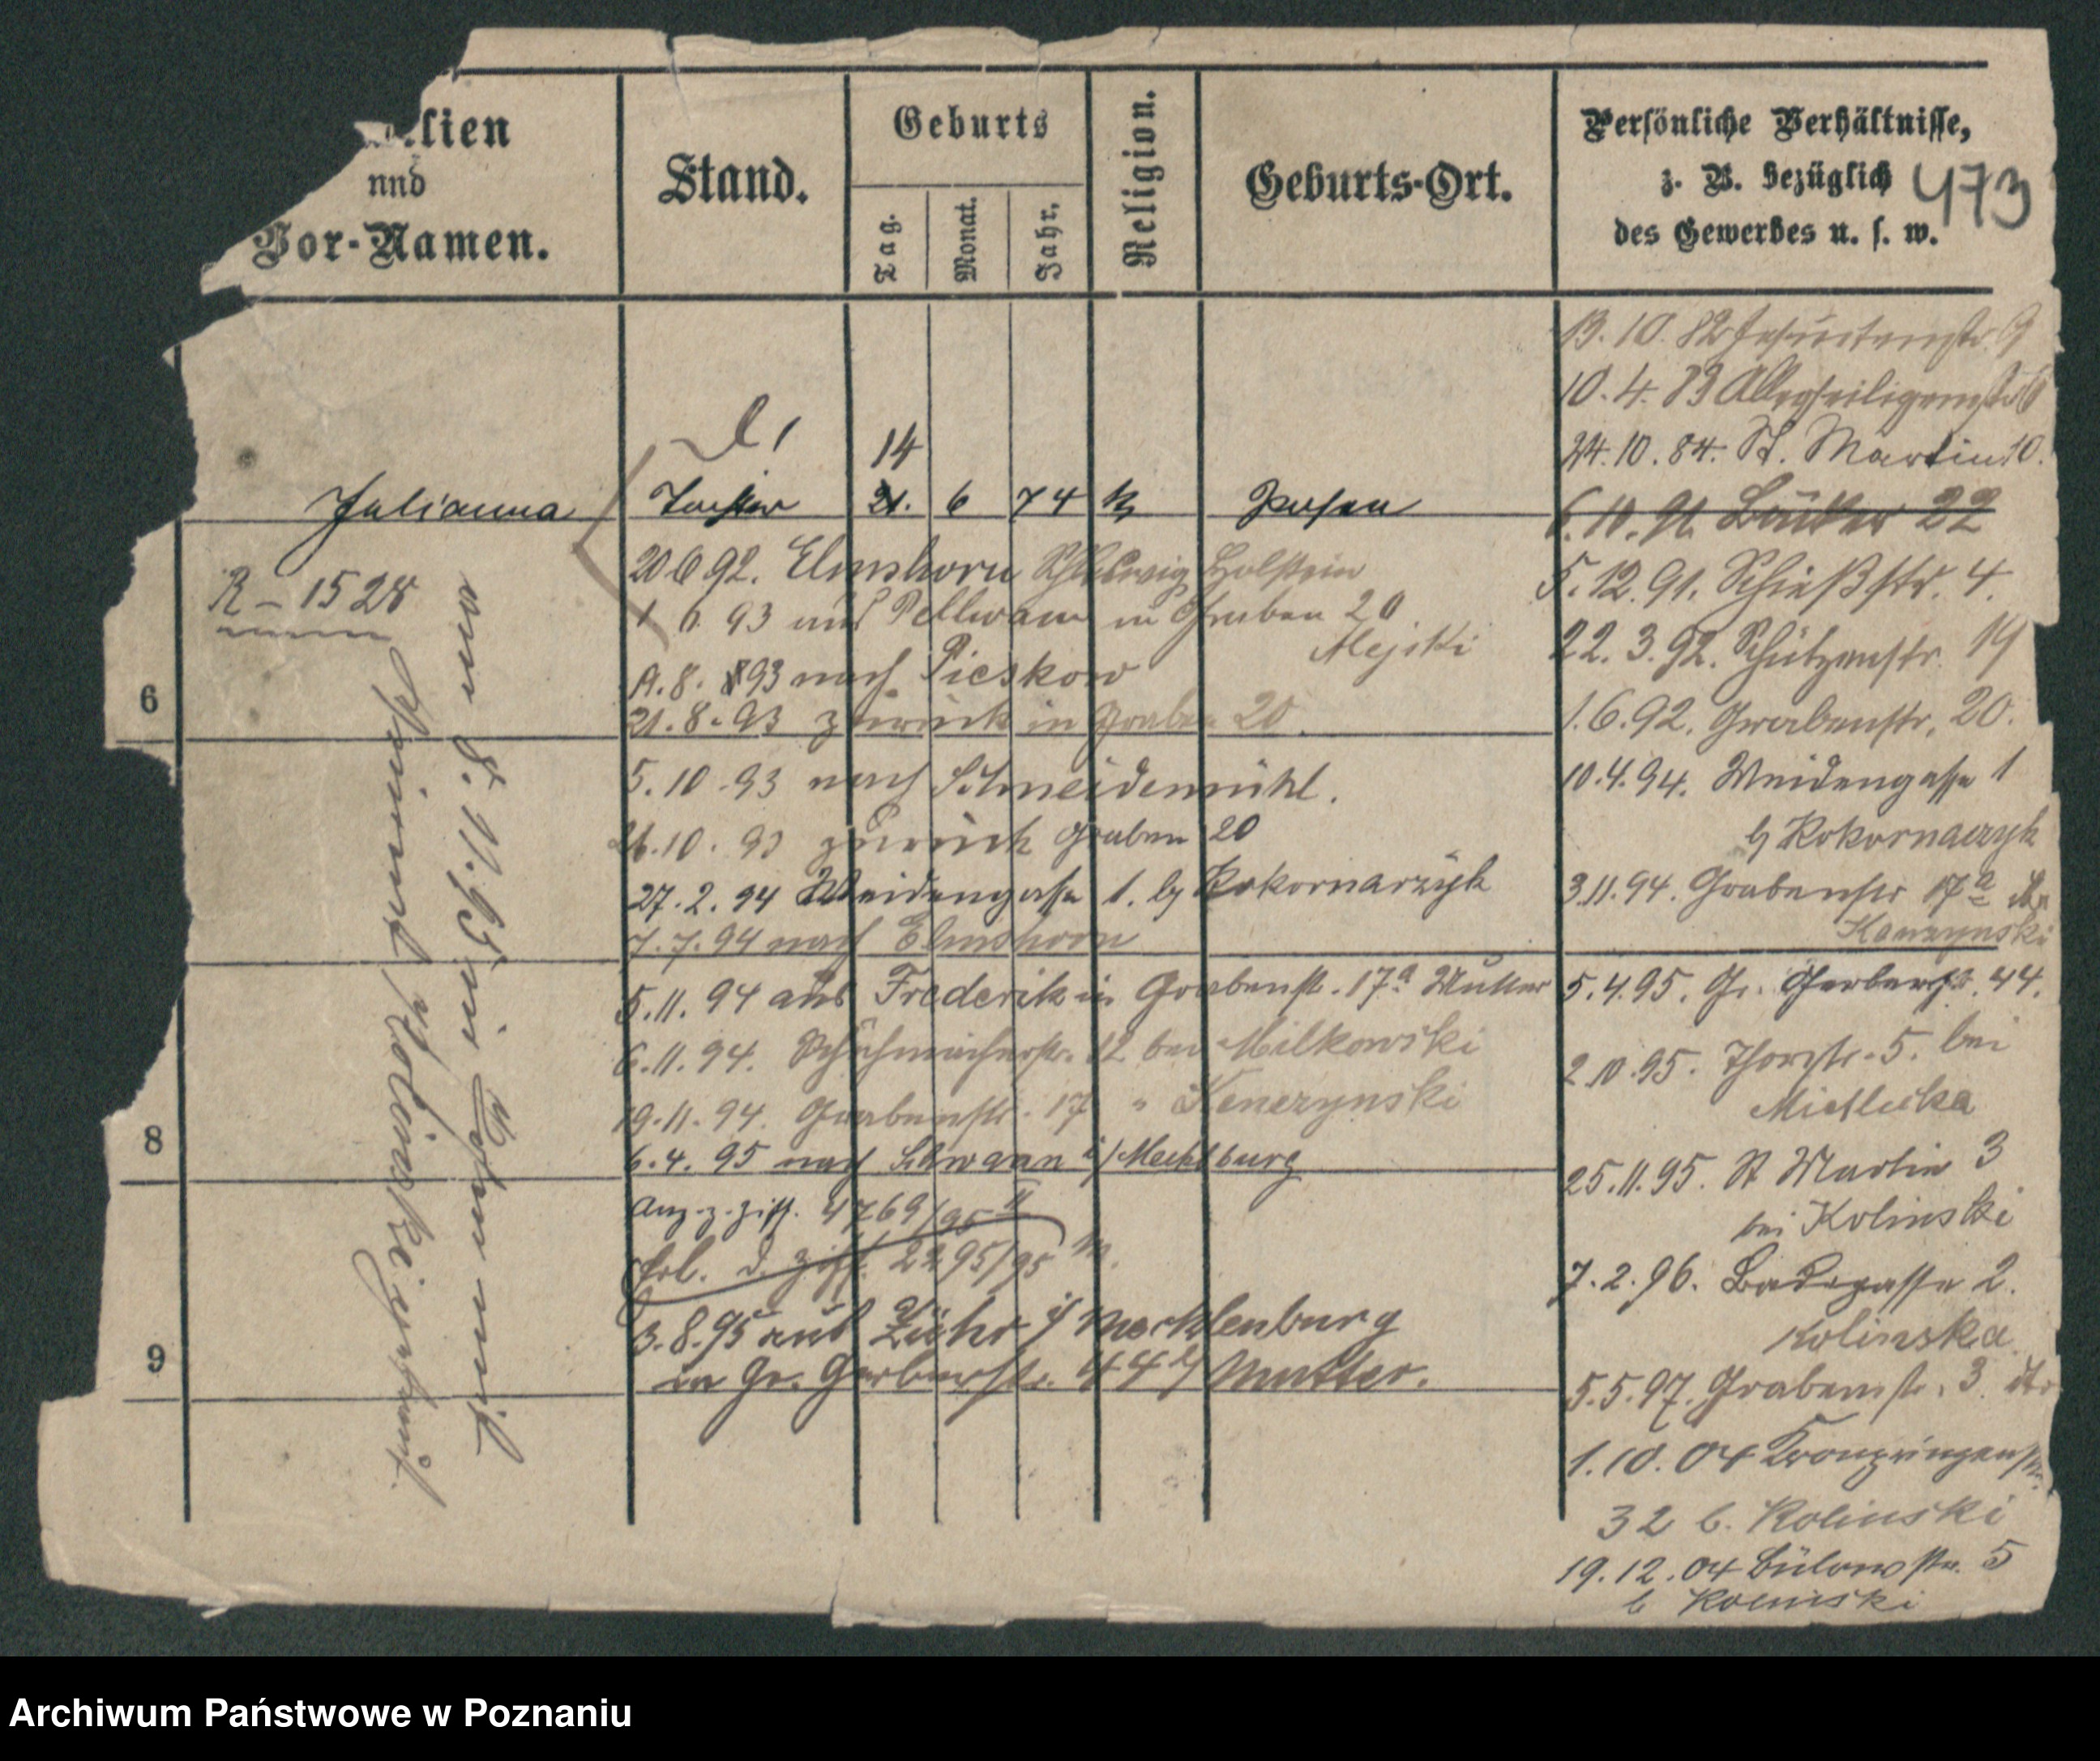 lien
und
Vor-Namen.
Stand.
Geburts
Tag.
Monat.
Jahr.
Religion.
Geburts-Ort.
Persönliche Verhältnisse,
z. B. bezüglich
des Gewerbes u. s. w.
473
14
Julianna Tochter 21. 6 74 k Posen
R - 1528
20 6 92. Elmshorn Schleswig Holstein
1 6 93 aus Pellworm in Graben 20
Majski
9.8. 93 nach Pieskow
21.8.93 zurück in Graben 20.
5.10.93 nach Schneidemühl.
26.10.93 zurück Graben 20
27.2.94 Weidengasse 1. b/ Kokornarzyk
7.7.94 nach Elmshorn
5.11.94 aus Frederik in Grabenstr. 17a Mutter
6.11.94. Schuhmacherstr. 12 bei Milkowski
19.11.94. Grabenstr. 17 " Kenczynski
6.4.95 nach Schwaan i/Mecklburg
Anz. z. Ziff. 4769/95 II
Erl. d. Ziff. 2295/95
3.8.95 aus Zühr i/ Mecklenburg
in Gr. Gerberstr. 44 b/ Mutter.
6
8
9
13.10.82 Jesuitenstr. 9
10.4.83 Allerheiligenstr 6
24.10.84. St. Martin 10.
6.10.91. Bäcker 22
5.12.91. Schießstr. 4.
22.3.92. Schützenstr. 19
1.6.92. Grabenstr. 20.
10.4.94. Weidengasse 1
b/ Kokornarzyk
3.11.94. Grabenstr 17a
Kenczynski
5.4.95. Gr. Gerberstr. 44.
2.10.95. Thorstr. 5. bei
Mietlicka
25.11.95. St Martin 3
bei Kolinski
7.2.96. Badegasse 2.
Kolinska
5.5.97. Grabenstr. 3
1.10.04 Kronprinzenstr.
32 b. Kolinski
19.12.04 Bülowstr. 5
b Kolinski
Archiwum Państwowe w Poznaniu